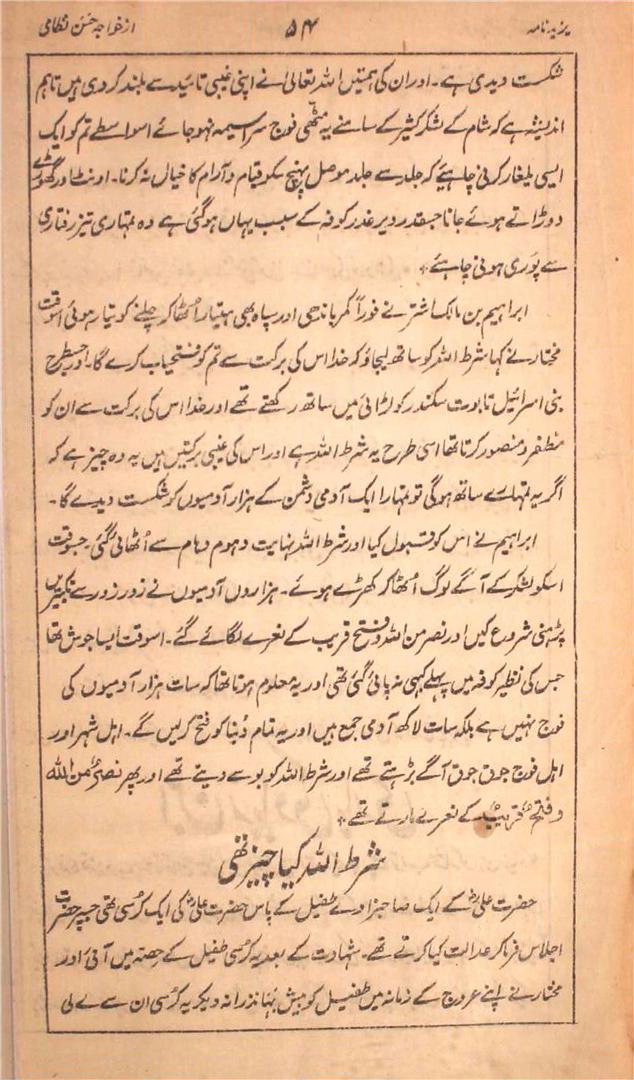 یزید نامہ ۵۴ از خواجہ حسن نظامی
شکست دیدی ہے۔ اور ان کی ہمتیں اللہ تعالیٰ نے اپنی غیبی تائید سے بلند کردی ہیں تاہم
اندیشہ ہے کہ شام کے لشکر کثیر کے سامنے یہ مٹھی فوج سراسیمہ نہوجائے اسواسطے تم کو ایک
ایسی یلغار کرنی چاہیئے کہ جلد سے جلد موصل پہنچ سکو قیام و آرام کا خیال نہ کرنا۔ اونٹ اور گھوڑے
دوڑاتے ہوئے جانا جسقدر دیر غدر کوفہ کے سبب یہاں ہوگئی ہے وہ تمہاری تیز رفتاری
سے پوری ہونی چاہئے۔
ابراہیم بن مالک اشتر نے فوراً کمر باندھی اور سپاہ بھی ہتیار اُٹھا کر چلنے کو تیار ہوئی اسوقت
مختار نے کہا شرط اللہ کو ساتھ لیجاؤ کہ خدا اس کی برکت سے تم کو فتحیاب کرے گا۔ اور جسطرح
بنی اسرائیل تابوت سکندر کو لڑائی میں ساتھ رکھتے تھے اور خدا اس کی برکت سے ان کو
مظفر و منصور کرتا تھا اسی طرح یہ شرط اللہ ہے اور اس کی غیبی برکتیں ہیں یہ وہ چیز ہے کہ
اگر یہ تمہارے ساتھ ہوگی تو تمہارا ایک آدمی دشمن کے ہزار آدمیوں کو شکست دیدے گا۔
ابراہیم نے اس کو قبول کیا اور شرط اللہ نہایت دہوم دہام سے اُٹھائی گئی۔ جسوقت
اسکو لشکر کے آگے لوگ اُٹھا کر کھڑے ہوئے۔ ہزاروں آدمیوں نے زور زور سے تکبیریں
پڑہنی شروع کیں اور نصر من اللہ و فتح قریب کے نعرے لگائے گئے۔ اسوقت ایسا جوش تھا
جس کی نظیر کوفہ میں پہلے کبھی نہ پائی گئی تھی اور یہ معلوم ہوتا تھا کہ سات ہزار آدمیوں کی
فوج نہیں ہے بلکہ سات لاکھ آدمی جمع ہیں اور یہ تمام دُنیا کو فتح کرلیں گے۔ اہل شہر اور
اہل فوج جوق جوق آگے بڑہتے تھے اور شرط اللہ کو بوسے دیتے تھے اور پھر نصرٌ من اللہ
و فتحٌ قریبٌ کے نعرے مارتے تھے۔
شرط اللہ کیا چیز تھی
حضرت علیؓ کے ایک صاحبزادے طفیل کے پاس حضرت علیؓ کی ایک کُرسی تھی جسپر حضرت
اجلاس فرما کر عدالت کیا کرتے تھے۔ شہادت کے بعد یہ کرسی طفیل کے حصہ میں آئی اور
مختار نے اپنے عروج کے زمانہ میں طفیل کو بیش بہا نذرانہ دیکر یہ کرسی ان سے لے لی